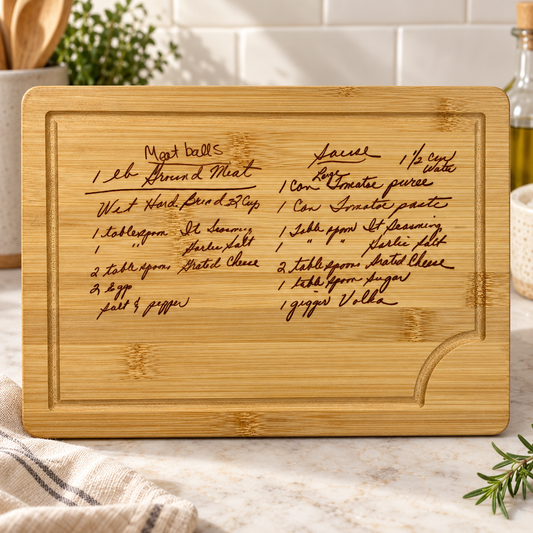 Meat balls
1 lb Ground Meat
Wet Hard Bread 2? Cup
1 tablespoon It Seasoning
1 " Garlic Salt
2 tablespoons Grated Cheese
2 Eggs
salt & pepper
Sause
1 1/2 Cup Water
Large
1 Can Tomatoe puree
1 Can Tomatoe paste
1 Table spoon It Seasoning
1 " " Garlic Salt
2 tablespoons Grated Cheese
1 table spoon Sugar
1 gigger Vodka